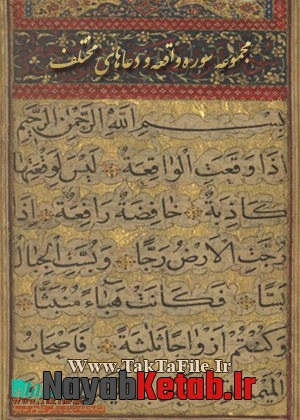 مجموعه سوره واقعه و دعاهای مختلف
بِسْمِ اللَّهِ الرَّحْمَٰنِ الرَّحِيمِ
اِذَا وَقَعَتِ الْوَاقِعَةُ لَيْسَ لِوَقْعَتِهَا
كَاذِبَةٌ خَافِضَةٌ رَافِعَةٌ اِذَا
رُجَّتِ الْاَرْضُ رَجًّا وَبُسَّتِ الْجِبَالُ
بَسًّا فَكَانَتْ هَبَاءً مُنْبَثًّا
وَكُنْتُمْ اَزْوَاجًا ثَلٰثَةً فَاَصْحَابُ
www.TakTaFile.Ir
NayabKetab.Ir